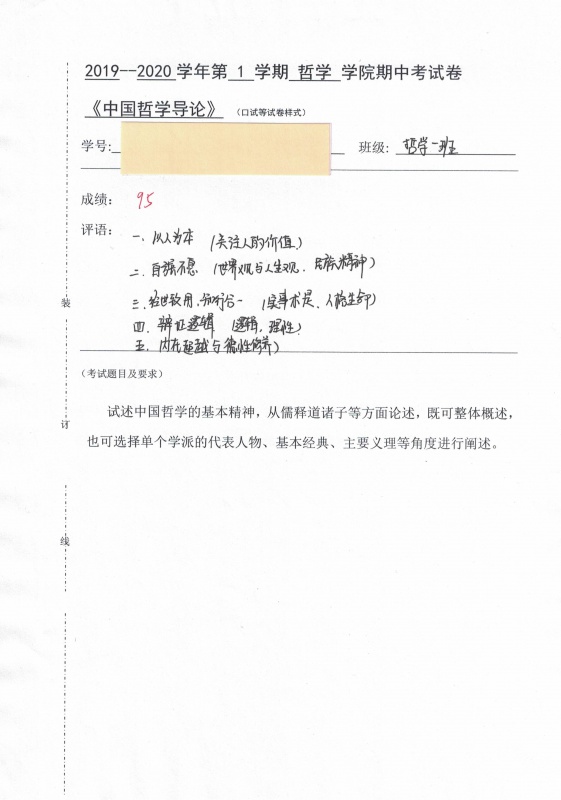 2019--2020 学年第 1 学期 哲学 学院期中考试卷
《中国哲学导论》 (口试等试卷样式)
学号: 班级: 哲学一班
成绩: 95
评语: 一、以人为本 (关注人的价值)
二、自强不息 (世界观与人生观、民族精神)
三、经世致用、知行合一 (实事求是、人格生命)
四、辩证逻辑 (逻辑,理性)
五、内在超越与德性修养)
(考试题目及要求)
试述中国哲学的基本精神，从儒释道诸子等方面论述，既可整体概述，
也可选择单个学派的代表人物、基本经典、主要义理等角度进行阐述。
装
订
线